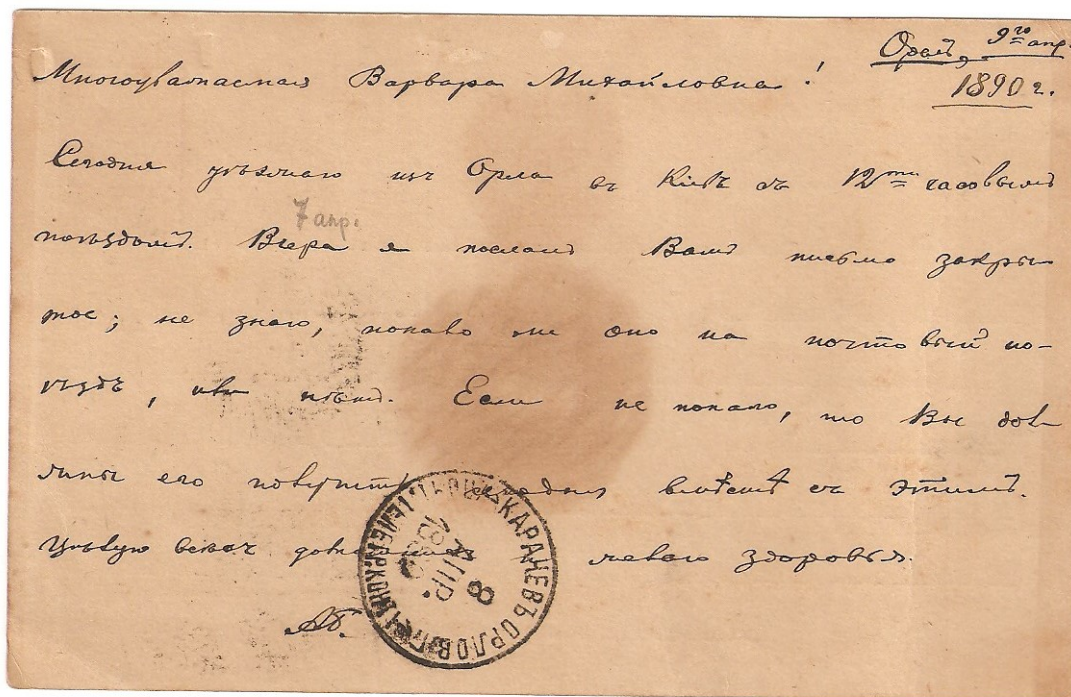 Орелъ, 9го апр.
1890 г.
Многоуважаемая Варвара Михайловна!
Сегодня уѣзжаю изъ Орла въ Кіевъ съ 12ти часовымъ
7 апр.
поѣздомъ. Вчера я послалъ Вамъ письмо закры
тое; не знаю, попало ли оно на почтовый по-
ѣздъ, или нѣтъ. Если не попало, то Вы дол
жны его получить сегодня вмѣстѣ съ этимъ.
желаю здоровья.
АБ.
КАРАЧЕВЪ ОРЛОВ.
8 АПР. 1890